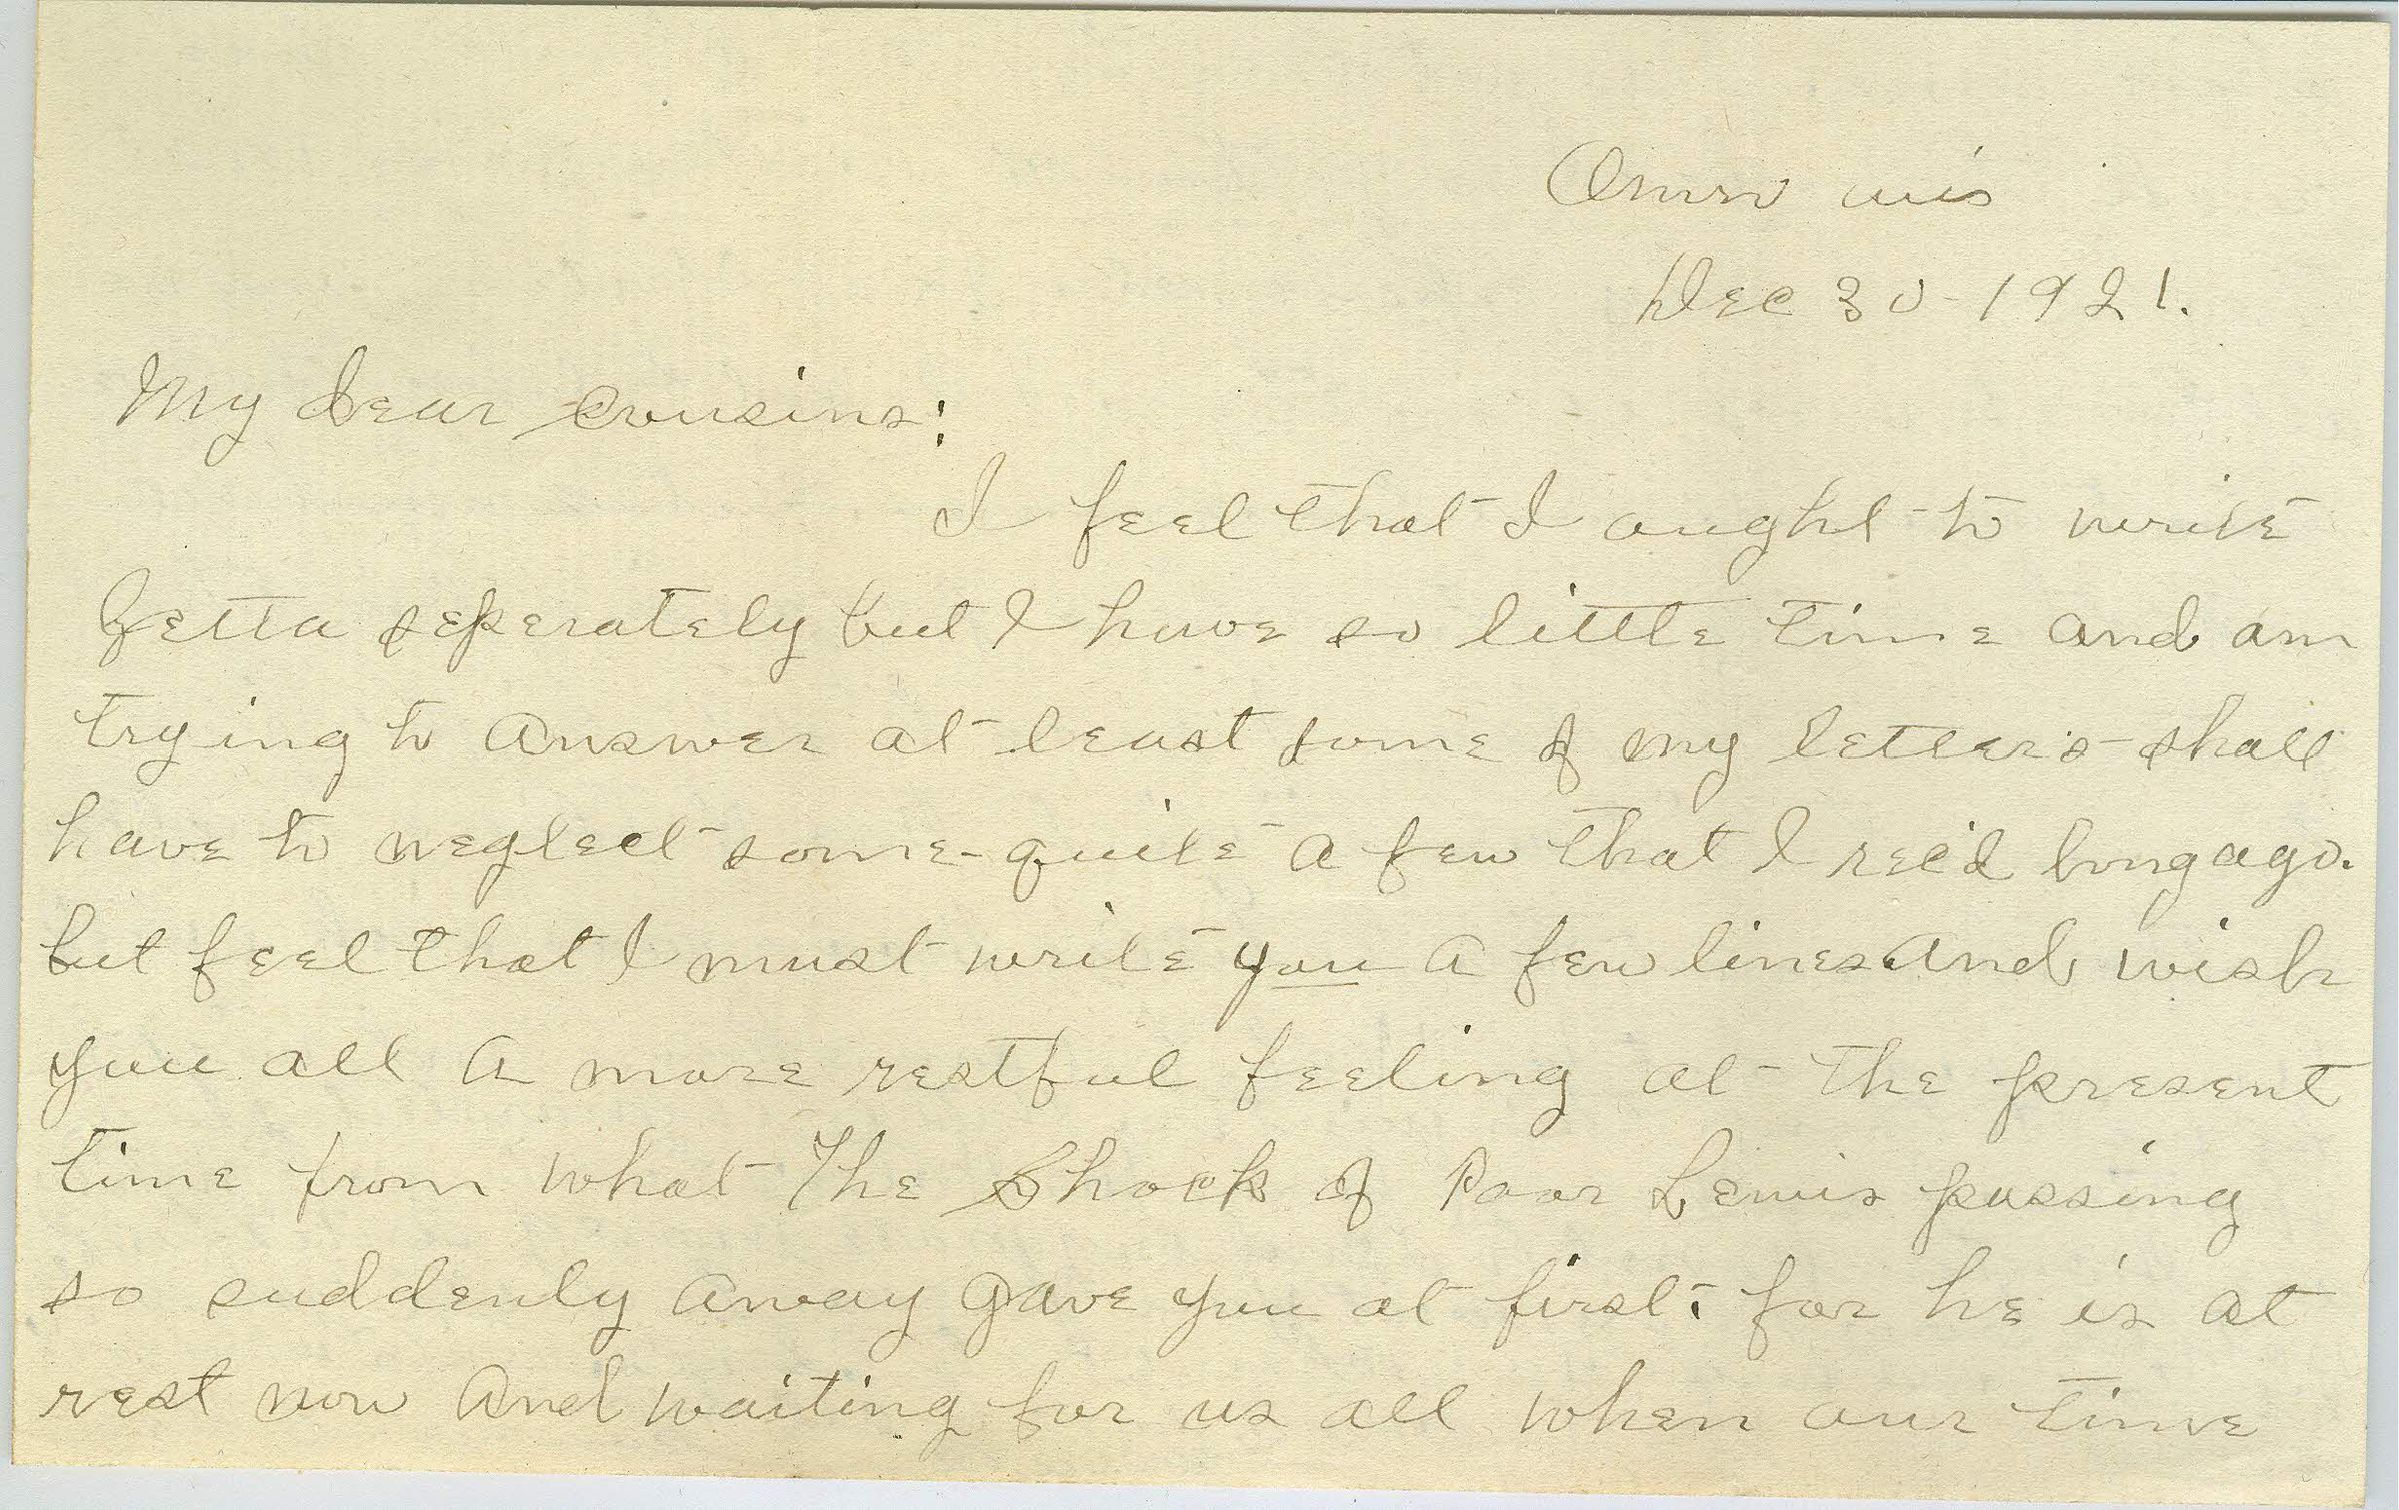 Omro wis
Dec 30 - 1921.
My dear cousins:
I feel that I ought to write
Getta seperately but I have so little time and am
trying to answer at least some of my letters - shall
have to neglect some - quite a few that I rec'd long ago.
but feel that I must write you a few lines. and wish
you all a more restful feeling at the present
time from what The Shock of Poor Lewis passing
so suddenly away gave you at first. for he is at
rest now and waiting for us all when our time